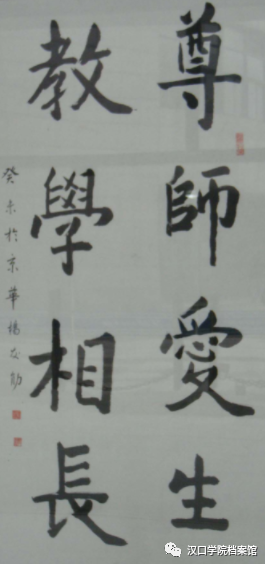 尊師愛生
教學相長
癸未於京華楊友勋
汉口学院档案馆